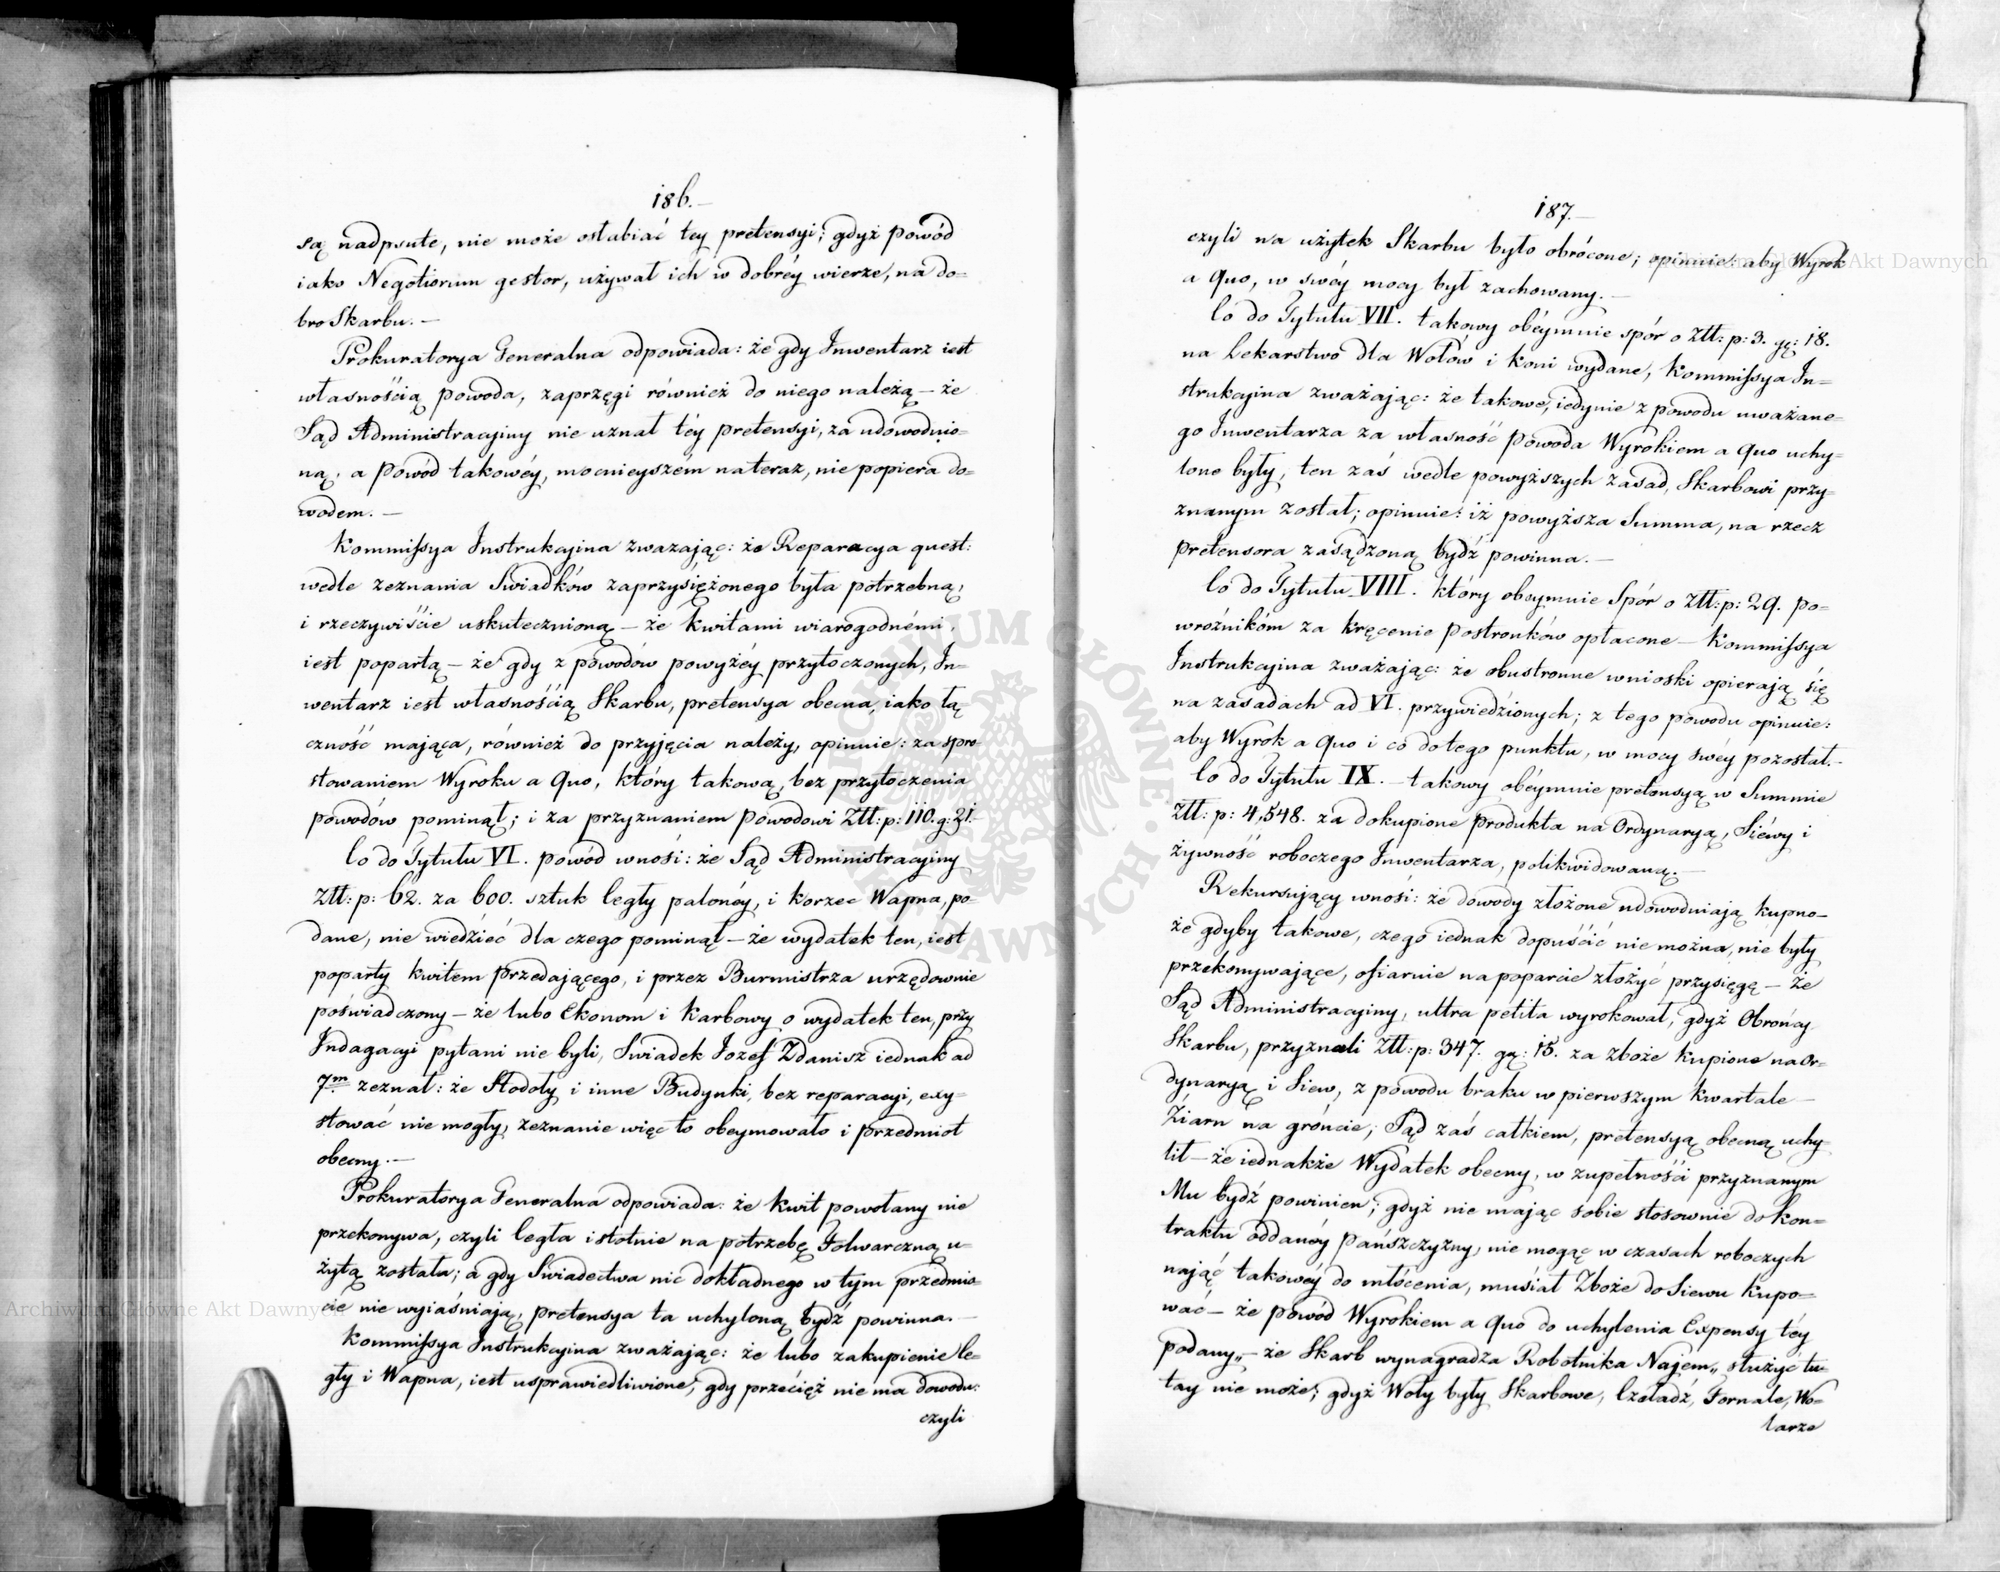 186.
są nadpsute, nie może osłabiać tey pretensyi; gdyż Powód
iako Negotiorum gestor, używał ich w dobréy wierze, na do=
bro Skarbu. —
Prokuratorya Generalna odpowiada: że gdy Inwentarz iest
własnością Powoda, zaprzęgi również do niego należą — że
Sąd Administracyiny nie uznał téy pretensyi, za udowodnio=
ną, a Powód takowéy, mocnieyszem nateraz, nie popiera do=
wodem. —
Kommissya Instrukcyina zważaiąc: że Reparacya quest:
wedle zeznania Swiadków zaprzysiężonego była potrzebną,
i rzeczywiście uskutecznioną — że kwitami wiarogodnémi,
iest popartą — że gdy z powodów powyżéy przytoczonych, In=
wentarz iest własnością Skarbu, pretensya obecna, iako łą=
czność maiąca, również do przyjęcia należy, opiniuie: za spro=
stowaniem Wyroku a Quo, który takową, bez przytoczenia
powodów pominął; i za przyznaniem Powodowi Złł: p: 110. g: 21.
Co do Tytułu VI. powód wnosi: że Sąd Administracyiny
Złł: p: 62. za 600. sztuk cegły palonéy, i korzec Wapna, po=
dane, nie wiedzieć dla czego pominął — że wydatek ten, iest
poparty kwitem przedaiącego, i przez Burmistrza urzędownie
poświadczony — że lubo Ekonom i Karbowy o wydatek ten, przy
Indagacyi pytani nie byli, Swiadek Jozef Zdanisz iednak ad
7m zeznał: że Stodoły i inne Budynki, bez reparacyi, exy=
stować nie mogły, zeznanie więc to obeymowało i przedmiot
obecny. —
Prokuratorya Generalna odpowiada: że kwit powołany nie
przekonywa, czyli cegła istotnie na potrzebę Folwarczną u=
żytą została; a gdy Swiadectwa nic dokładnego w tym przedmio=
cie nie wyiaśniaią, pretensya ta uchyloną bydź powinna. —
Kommissya Instrukcyina zważaiąc: że lubo zakupienie ce=
gły i Wapna, iest usprawiedliwione, gdy przecięż nie ma dowodu:
czyli
187.
czyli na użytek Skarbu było obrócone; opiniuie: aby Wyrok
a Quo, w swéy mocy był zachowany. —
Co do Tytułu VII. takowy obéymuie spór o Złł: p: 3. gę: 18.
na Lekarstwo dla Wołów i koni wydane, Kommissya In=
strukcyina zważaiąc: że takowe, iedynie z powodu uważane=
go Inwentarza za własność Powoda Wyrokiem a Quo uchy=
lone były, ten zaś wedle powyższych zasad, Skarbowi przy=
znanym został; opiniuie: iż powyższa Summa, na rzecz
Pretensora zasądzoną bydź powinna. —
Co do Tytułu VIII. który obeymuie Spór o Złł: p: 29. po=
wroźnikóm za kręcenie Postronków opłacone — Kommissya
Instrukcyina zważaiąc: że obustronne wnioski opieraią się
na zasadach ad VI. przywiedzionych; z tego powodu opiniuie:
aby Wyrok a Quo i co do tego punktu, w mocy swéy pozostał. —
Co do Tytułu IX. — takowy obéymuie pretensyą w Summie
Złł: p: 4,548. za dokupione produkta na Ordynaryą, Siéwy i
żywność roboczego Inwentarza, polikwidowaną. —
Rekursuiący wnosi: że dowody złożone udowodniaią kupno —
że gdyby takowe, czego iednak dopuścić nie można, nie były
przekonywaiące, ofiaruie na poparcie złożyć przysięgę — że
Sąd Administracyiny, ultra petita wyrokował, gdyż Obrońcy
Skarbu, przyznali Złł: p: 347. gę: 15. za zboże kupione na Or=
dynaryą i Siew, z powodu braku w pierwszym kwartale —
Ziarn na gróncie; Sąd zaś całkiem, pretensyą obecną uchy=
lił — że iednakże Wydatek obecny, w zupełności przyznanym
Mu bydź powinien; gdyż nie maiąc sobie stosownie do kon=
traktu oddanéy Pańszczyzny, nie mogąc w czasach roboczych
naiąć takowéy do młócenia, musiał Zboże do Siewu kupo=
wać — że powód Wyrokiem a Quo do uchylenia Expensy téy
podany „— że Skarb wynagradza Robotnika Najem„ służyć tu=
tay nie może; gdyż Woły były Skarbowe, Czeladź, Fornale, Wo=
larze
Archiwum Główne Akt Dawnych
Archiwum Główne Akt Dawnych
ARCHIWUM GŁÓWNE AKT DAWNYCH